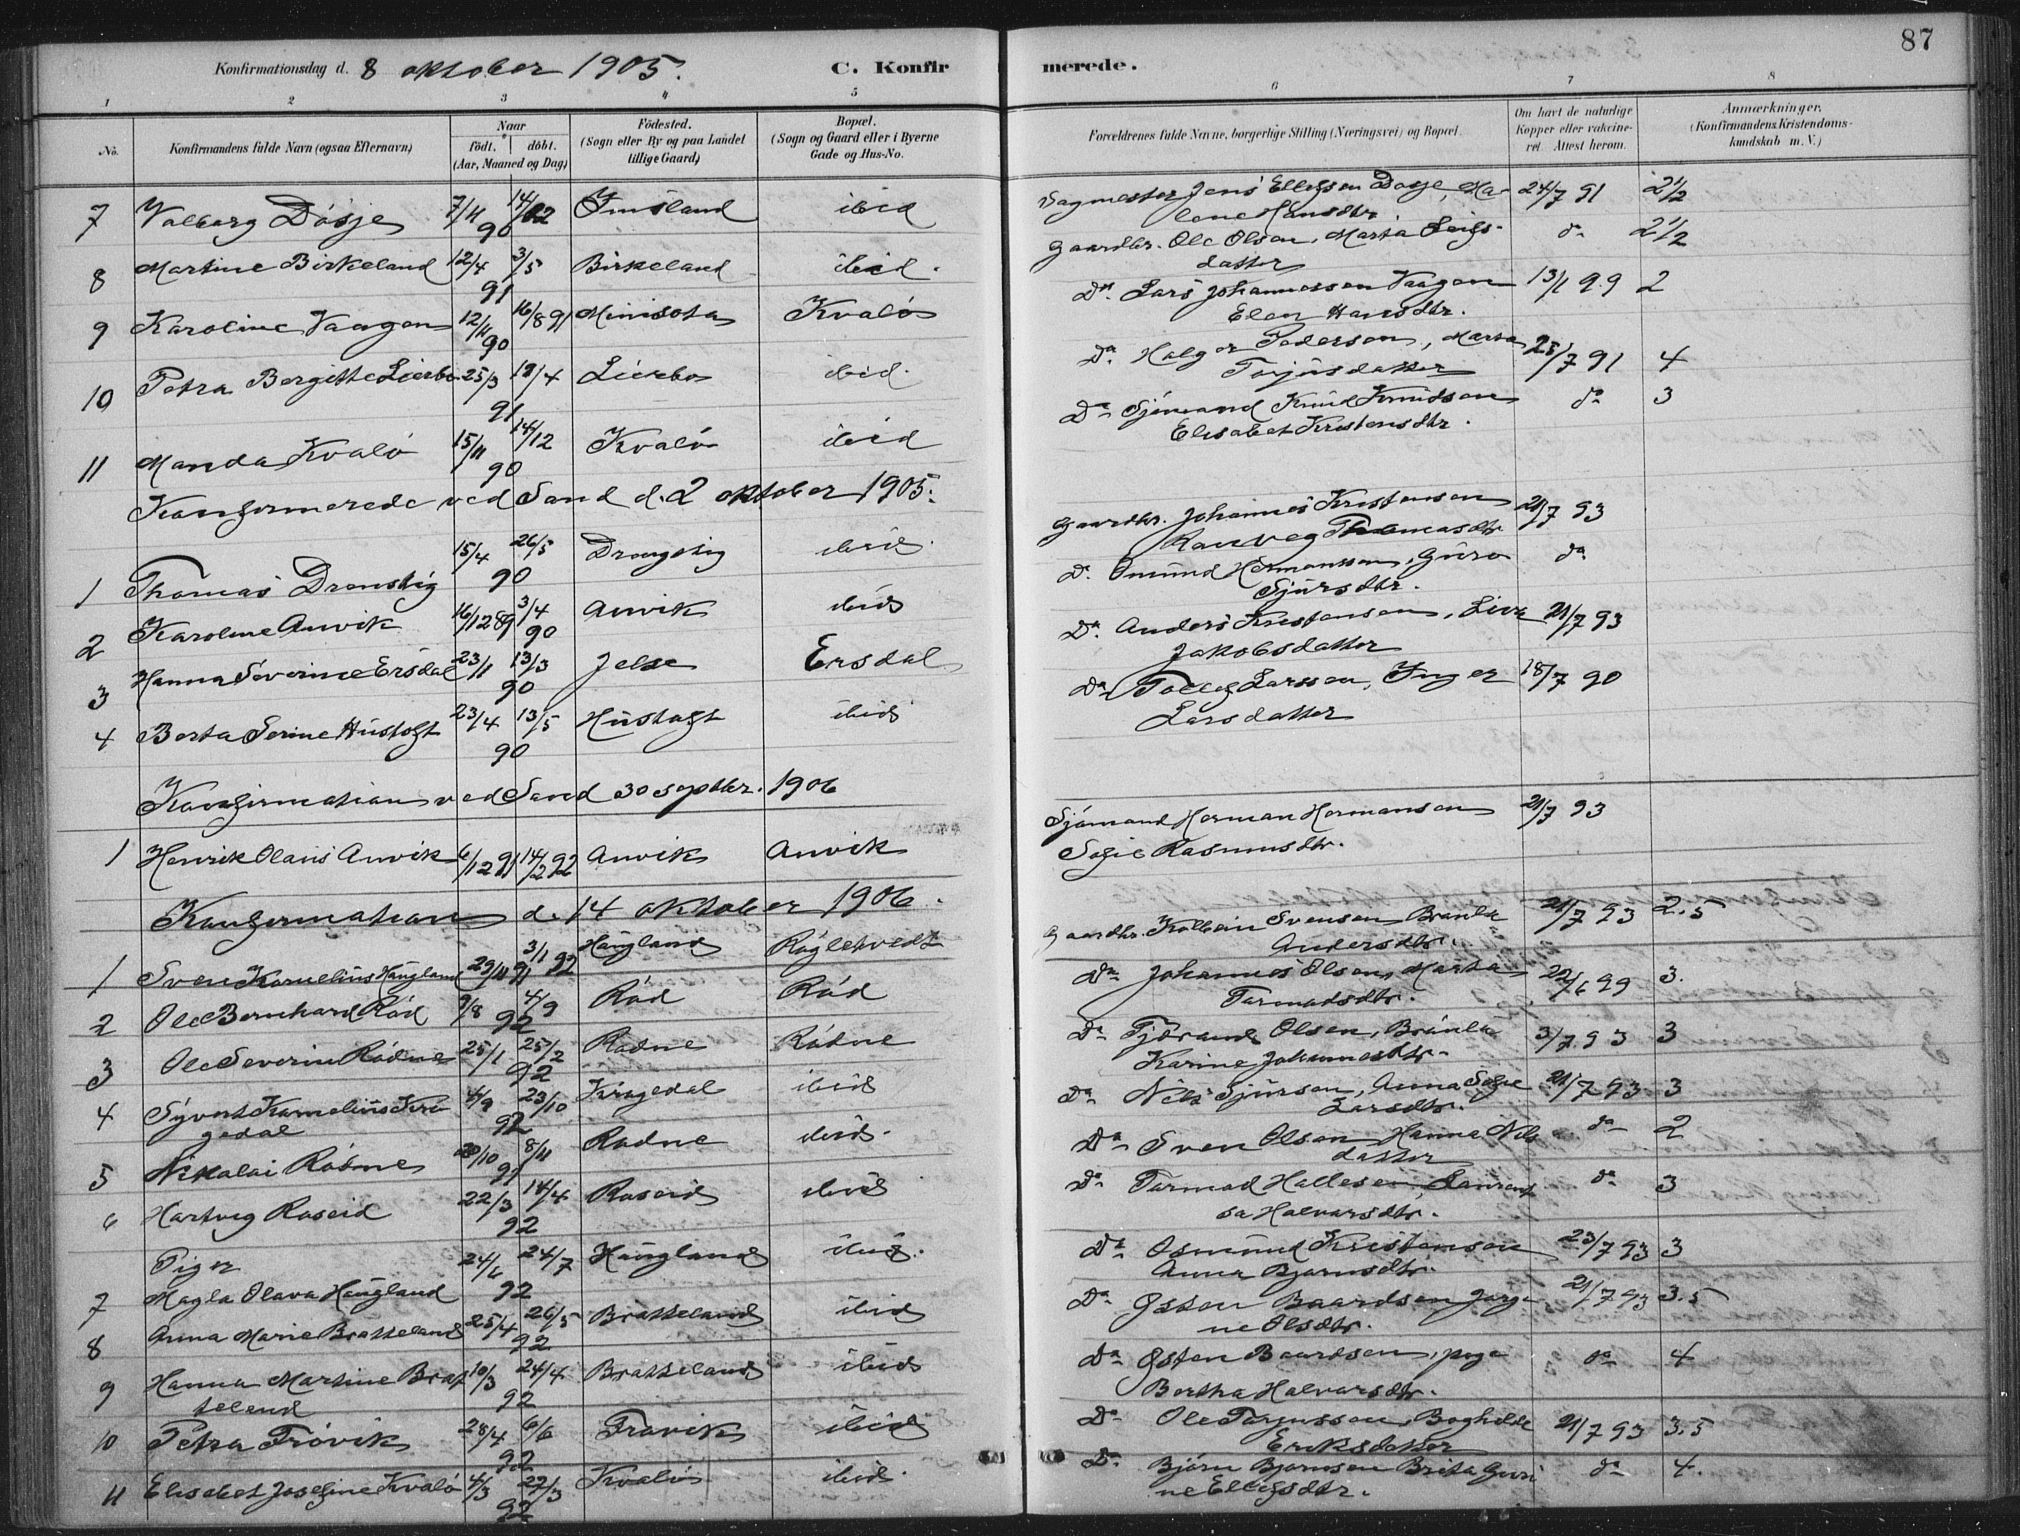 87
Konfirmationsdag d. 8 oktober 1905. C. Konfirmerede.
1 2 3 4 5 6 7 8
No. Konfirmandens fulde Navn (ogsaa Efternavn) Naar födt. döbt. (Aar, Maaned og Dag) Födested. (Sogn eller By og paa Landet tillige Gaard) Bopæl. (Sogn og Gaard eller i Byerne Gade og Hus-No. Forældrenes fulde Navne, borgerlige Stilling (Næringsvei) og Bopæl. Om havt de naturlige Kopper eller vakcineret. Attest herom. Anmærkninger. (Konfirmandens Kristendomskundskab m. V.)
7 Valborg Dösje 7/11 90 14/12 Imsland ibid Jens Ellefsen Dösje, Malene Hansdtr 24/7 91 2½
8 Martine Birkeland 12/4 91 3/5 Birkeland ibid. Gaardbr. Ole Olsen, Marta Leifsdatter do 2½
9 Karoline Vaagen 12/11 90 16/8 91 Minisota Kvalö Do. Lars Johannessen Vaagen Elen Hansdtr. 13/1 99 2
10 Petra Bergitte Lierbo 25/3 91 18/4 Lierbo ibid. Do. Holger Pedersen, Marta Torjusdatter 25/7 91 4
11 Manda Kvalö 15/11 90 14/12 Kvalö ibid Do Sjömand Knud Knudsen Elisabet Kristensdtr. do 3
Konfirmerede ved Sand d. 2 oktober 1905.
1 Thomas Dronstig 15/4 90 26/5 Drangstig ibid Gaardbr. Johannes Kristensen Ranveg Thomasdtr 21/7 93
2 Karoline Anvik 16/12 89 3/4 90 Anvik ibid Do. Omund Hermansen, Guro Sjursdtr. do
3 Hanna Severine Ersdal 23/1 90 13/3 Jelse Ersdal Do. Anders Kristensen, Liva Jakobsdatter 21/7 93
4 Berta Serine Hustoft 23/4 90 13/5 Hustoft ibid Do Tollef Larssen, Inger Larsdatter 18/7 90
Konfirmation ved Sand 30 septbr. 1906
1 Henrik Olaus Anvik 6/12 91 14/2 92 Anvik Anvik Sjömand Herman Hermansen Sofie Rasmusdtr. 21/7 93
Konfirmation d. 14 oktober 1906.
1 Sven Kornelius Haugland 29/11 91 3/1 92 Haugland Röglehvedt Gaardbr. Kolbein Svensen Brunla Andersdtr. 21/7 93 2.5
2 Ole Bernhard Röd 9/8 92 4/9 Röd Röd Do Johannes Olsen, Marta Tormodsdtr. 22/6 99 3.
3 Ole Severin Rödne 25/1 92 25/2 Rödne Rödne Do Tjöran Olsen, Brunla Karine Johannesdtr. 3/7 93 3
4 Syvert Kornelius Krogedal 4/9 92 23/10 Krogedal ibid Do Nils Sjursen, Anna Sofie Larsdtr. 21/7 93 3
5 Nikolai Rödne 20/10 91 8/11 Rödne ibid. Do Sven Olsen Hanna Nilsdatter do 2
6 Hartvig Roseid 22/3 92 14/4 Roseid ibid Do Tormod Hallesen, Laurensa Halvarsdtr. do 3
Piger
7 Magla Olava Haugland 24/6 92 24/7 Haugland ibid. Do Osmund Kristensen Anna Bjornsdtr. 23/7 93 3
8 Anna Marie Bratteland 25/4 92 26/5 Bratteland ibid Do Østen Baardsen Jorgine Olsdtr. 21/7 93 3.5
9 Hanna Martine Bratteland 10/3 92 24/4 Bratteland ibid Do Østen Baardsen, Bertha Halvarsdtr. do 4
10 Petra Frövik 28/4 92 6/6 Frövik ibid Do Ole Torjussen, Boghilde Eriksdatter 21/7 93 3.5
11 Elisabet Josefine Kvalö 4/3 92 27/3 Kvalö ibid. Do Björn Bjornsen Brita Gurine Ellefsdtr. do 4.